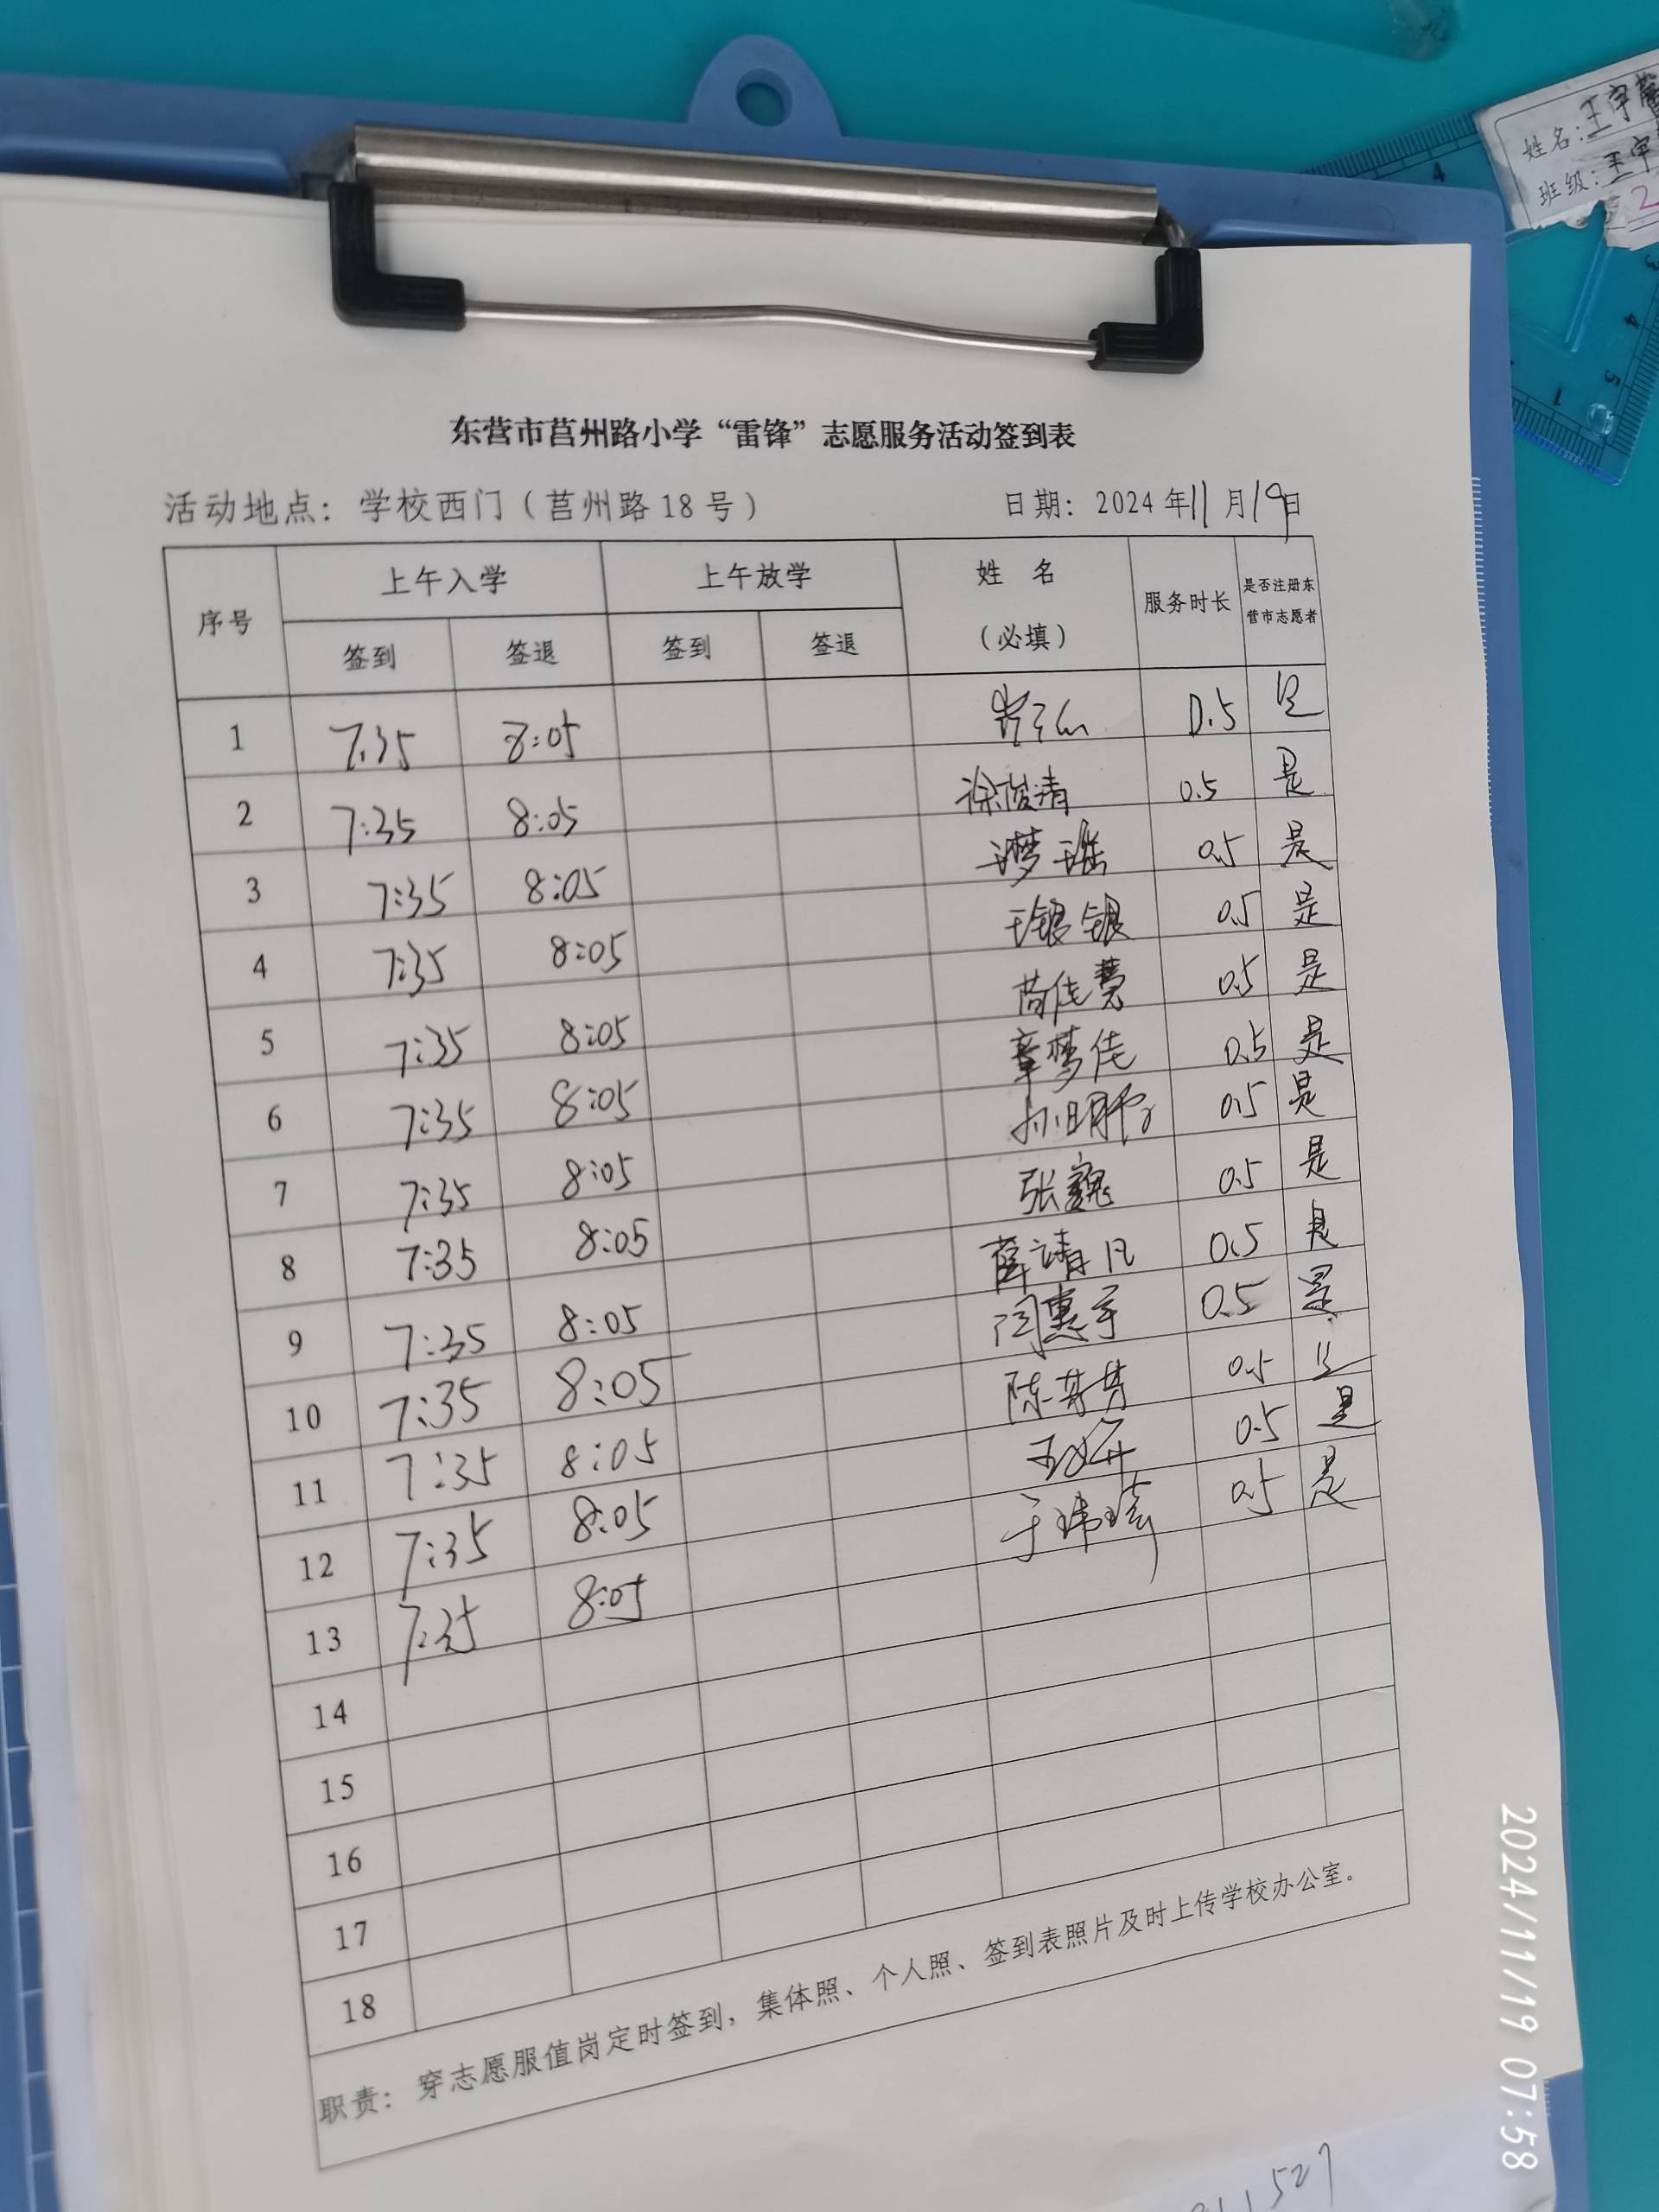 姓名：王宇
班级：王宇
2
4
3
4
5
1
东营市莒州路小学“雷锋”志愿服务活动签到表
活动地点：学校西门（莒州路18号） 日期：2024年11月19日
序号 上午入学 上午放学 姓 名 服务时长 是否注册东
签到 签退 签到 签退 （必填） 营市志愿者
1 7:35 8:05 0.5 是
2 7:35 8:05 徐俊清 0.5 是
3 7:35 8:05 梦瑶 0.5 是
4 7:35 8:05 王银银 0.5 是
5 7:35 8:05 苘佳慧 0.5 是
6 7:35 8:05 章梦佳 0.5 是
7 7:35 8:05 孙明 0.5 是
8 7:35 8:05 张巍 0.5 是
9 7:35 8:05 薛靖凡 0.5 是
10 7:35 8:05 闫惠 0.5 是
11 7:35 8:05 陈芬芳 0.5 是
12 7:35 8:05 王妍 0.5 是
13 7:35 8:05 于玮琦 0.5 是
14
15
16
17
18
职责：穿志愿服值岗定时签到，集体照、个人照、签到表照片及时上传学校办公室。
527
2024/11/19 07:58